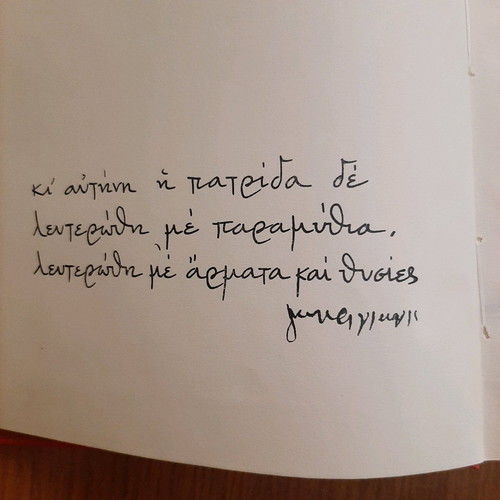 κι' αὐτήνη ἡ πατρίδα δέ
λευτερώθη μέ παραμύθια.
λευτερώθη μέ ἅρματα καί θυσίες